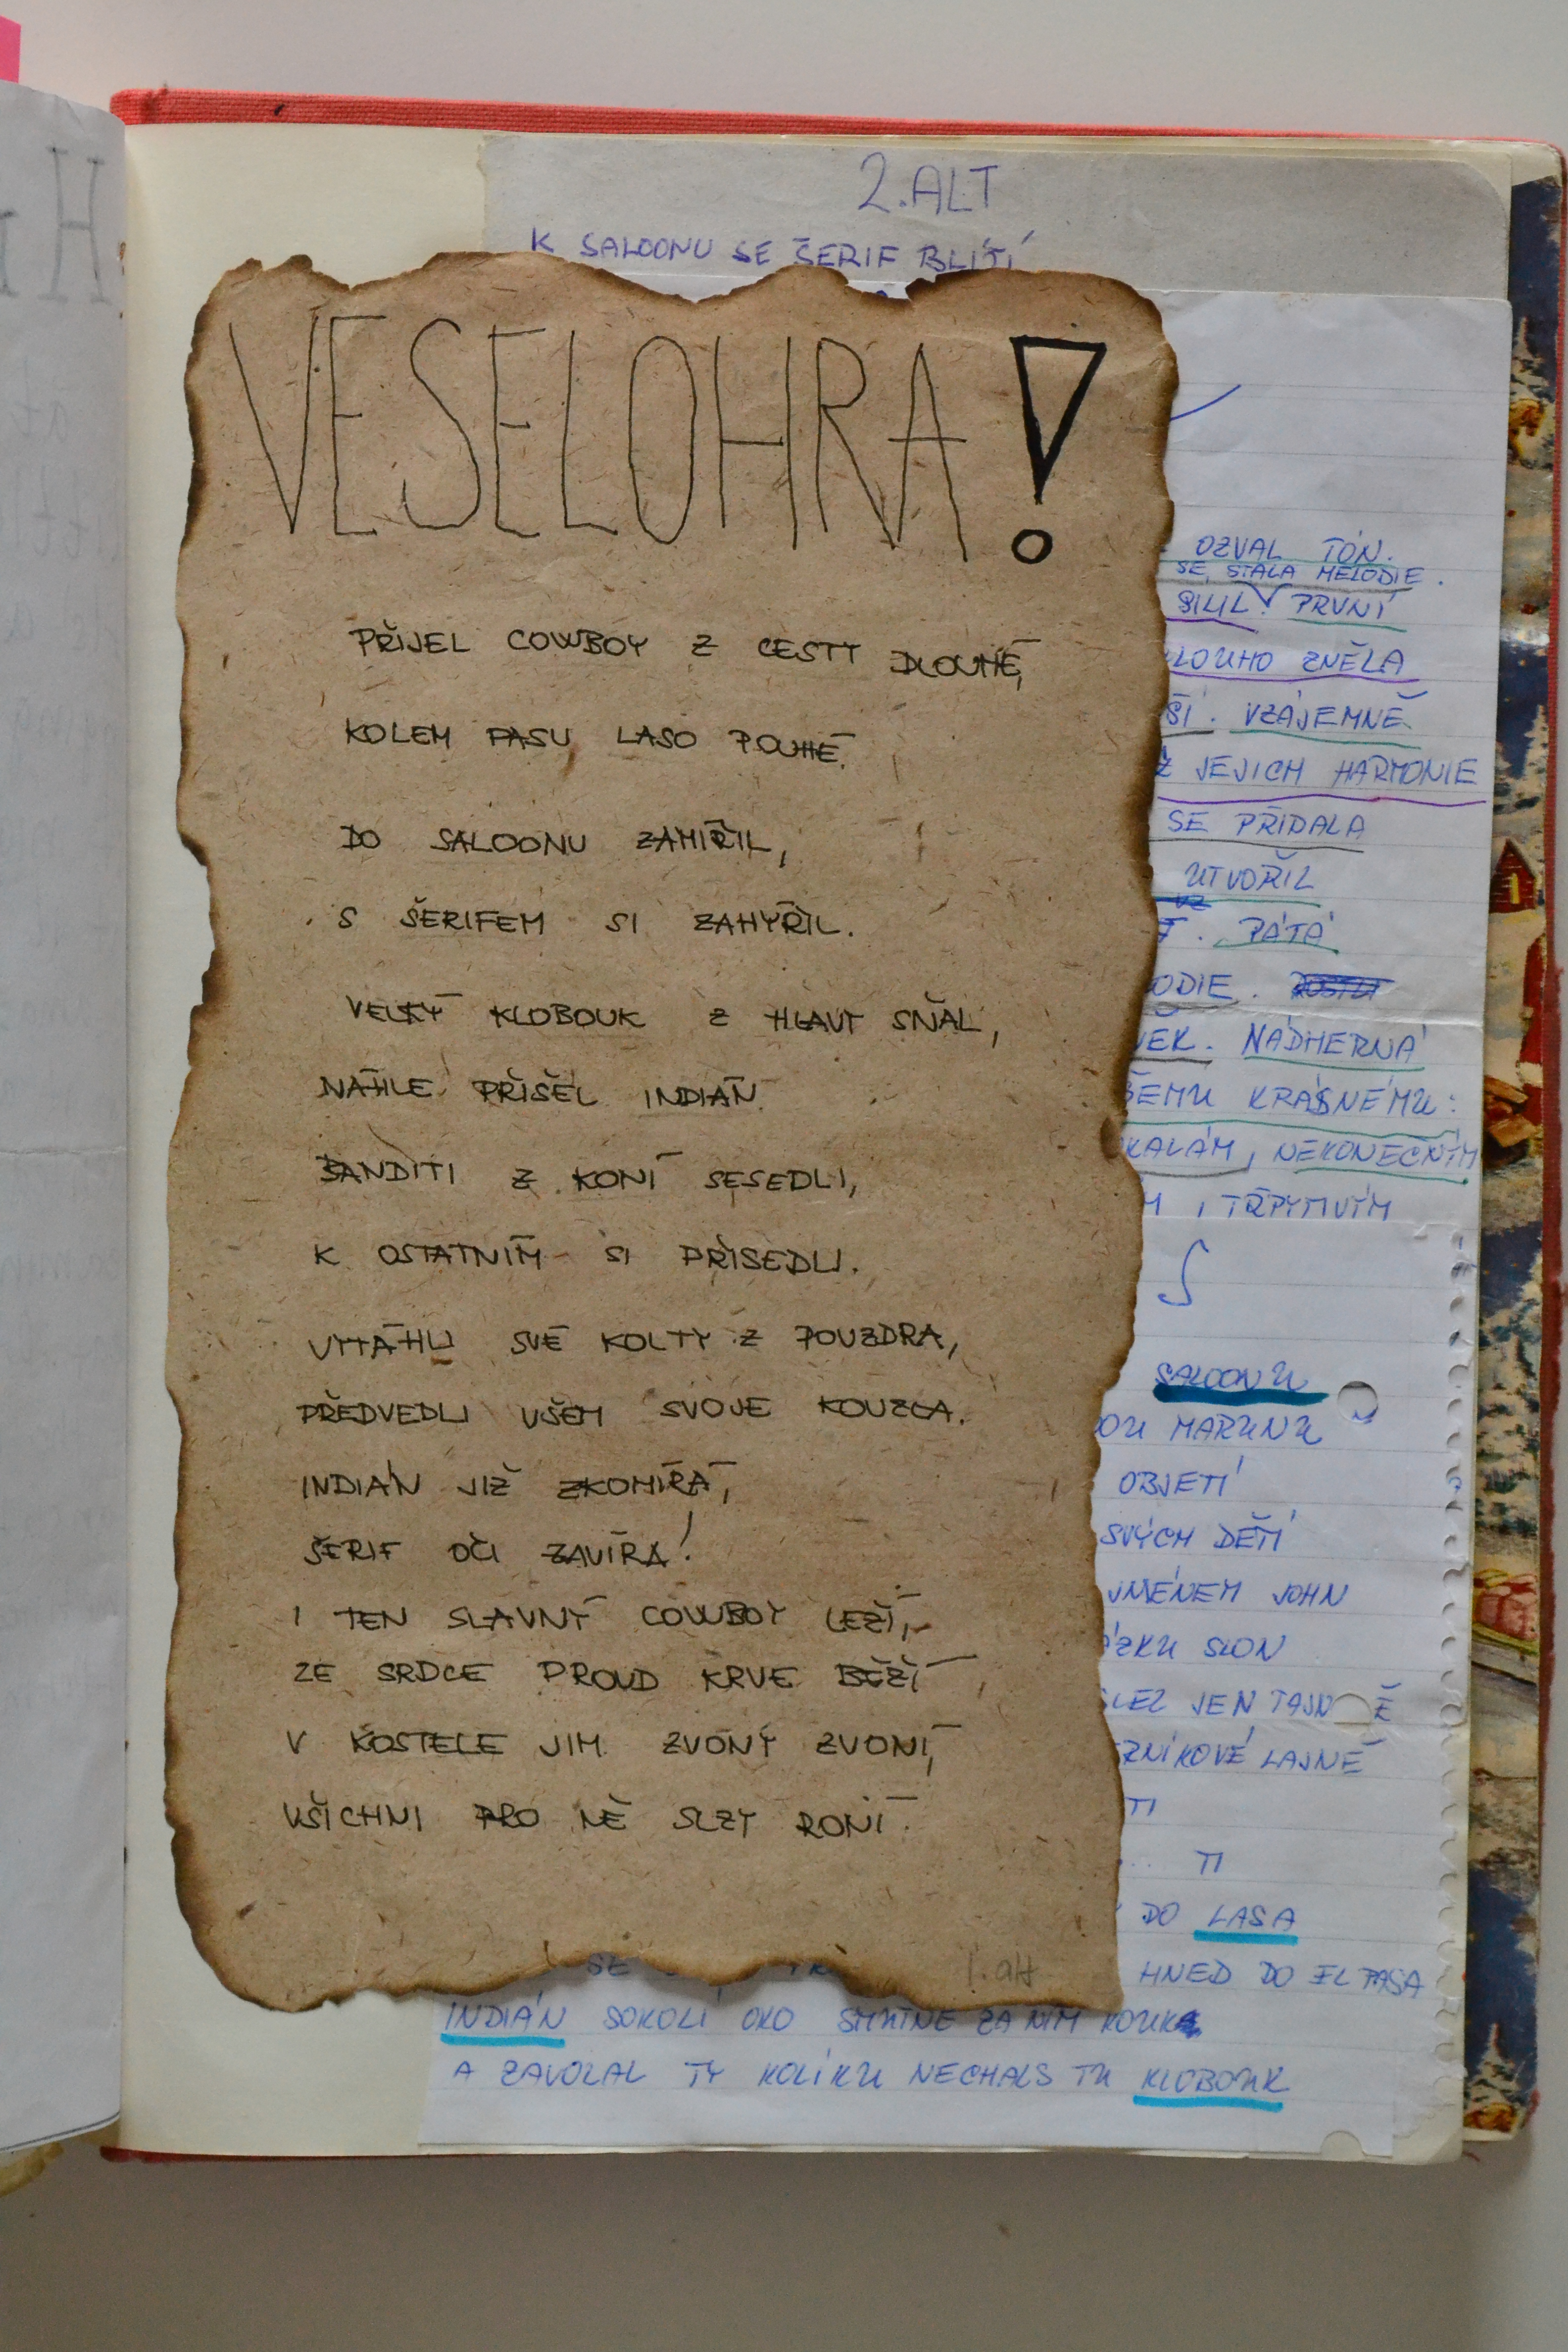 2. ALT
K SALOONU SE ŠERIF BLÍŽÍ
VESELOHRA!
PŘIJEL COWBOY Z CESTY DLOUHÉ,
KOLEM PASU LASO POUHÉ.
DO SALOONU ZAMÍŘIL,
S ŠERIFEM SI ZAHÝŘIL.
VELKÝ KLOBOUK Z HLAVY SŇAL,
NÁHLE PŘIŠEL INDIÁN.
BANDITI Z KONÍ SESEDLI,
K OSTATNÍM SI PŘISEDLI.
VYTÁHLI SVÉ KOLTY Z POUZDRA,
PŘEDVEDLI VŠEM SVOJE KOUZLA.
INDIÁN JIŽ ZKOMÍRÁ,
ŠERIF OČI ZAVÍRÁ!
I TEN SLAVNÝ COWBOY LEŽÍ,
ZE SRDCE PROUD KRVE BĚŽÍ,
V KOSTELE JIM ZVONY ZVONÍ,
VŠICHNI PRO NĚ SLZY RONÍ.
1. alt
OZVAL TÓN.
SE STALA MELODIE.
SÍLIL. PRVNÍ
DLOUHO ZNĚLA
ŠÍ. VZÁJEMNĚ
Z JEJICH HARMONIE
SE PŘIDALA
UTVOŘIL
PÁTÁ
ODIE.
VĚK. NÁDHERNÁ
ŠEMU KRÁSNÉMU:
SKALÁM, NEKONEČNÝM
M, TŘPYTIVÝM
SALOONU
OU MARUNU
OBJETÍ
SVÝCH DĚTÍ
JMÉNEM JOHN
ÁZKU SLON
SLEZ JEN TAJNĚ
ZNÍKOVÉ LAJNĚ
TI
TI
DO LASA
SE HNED DO EL PASA
INDIÁN SOKOLÍ OKO SMUTNĚ ZA NÍM KOUK
A ZAVOLAL TY KOLÍKU NECHALS TU KLOBOUK